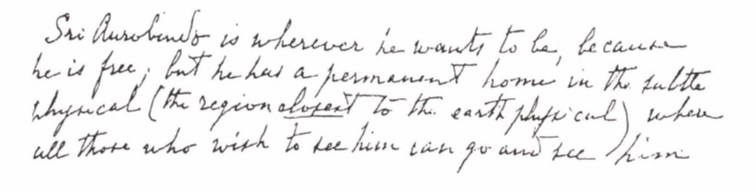 Sri Aurobindo is wherever he wants to be, because
he is free; but he has a permanent home in the subtle
physical (the region closest to the earth physical) where
all those who wish to see him can go and see him